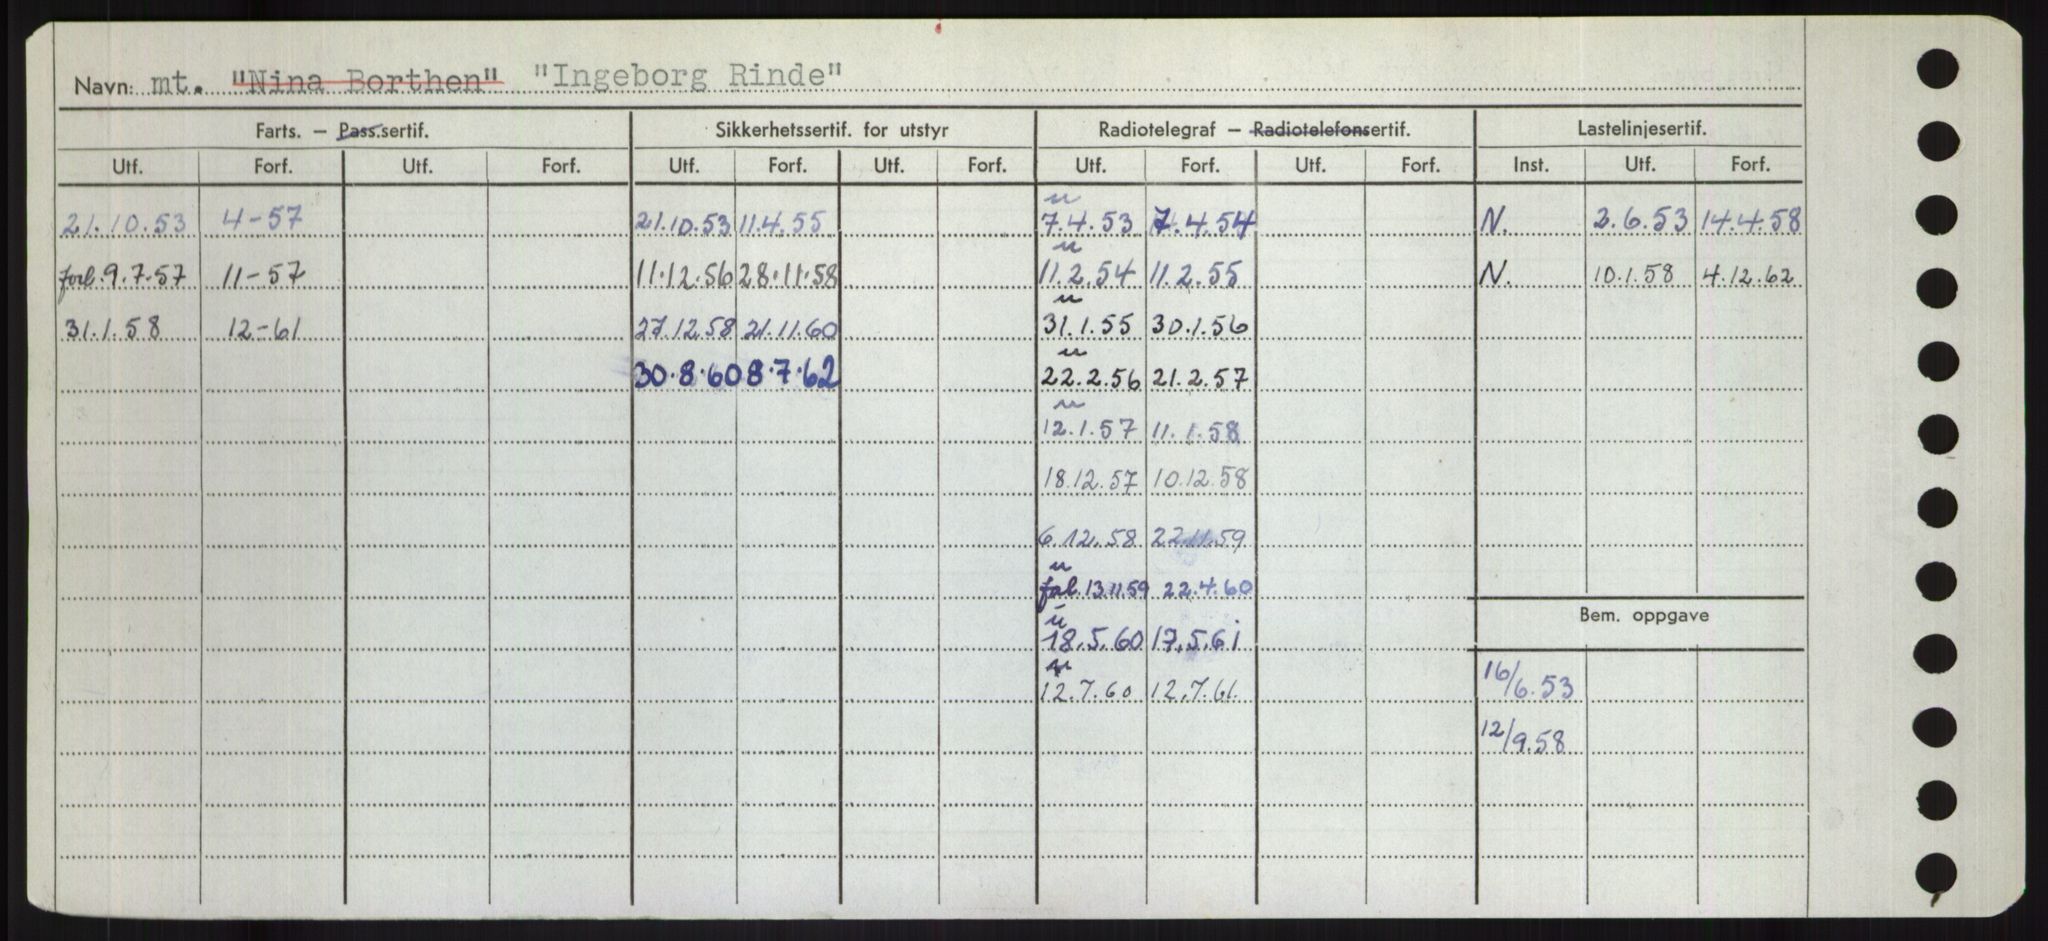 Navn: mt. "Nina Borthen" "Ingeborg Rinde"
Farts. – Pass.sertif. Sikkerhetssertif. for utstyr Radiotelegraf – Radiotelefonsertif. Lastelinjesertif.
Utf. Forf. Utf. Forf. Utf. Forf. Utf. Forf. Utf. Forf. Utf. Forf. Inst. Utf. Forf.
u
21.10.53 4-57 21.10.53 11.4.55 7.4.53 7.4.54 N. 2.6.53 14.4.58
u
forl. 9.7.57 11-57 11.12.56 28.11.58 11.2.54 11.2.55 N. 10.1.58 4.12.62
u
31.1.58 12-61 27.12.58 21.11.60 31.1.55 30.1.56
u
30.8.60 8.7.62 22.2.56 21.2.57
u
12.1.57 11.1.58
18.12.57 10.12.58
6.12.58 22.11.59
u
13.11.59 22.4.60
Bem. oppgave
u
18.5.60 17.5.61
u
12.7.60 12.7.61
16/6.53
12/9.58